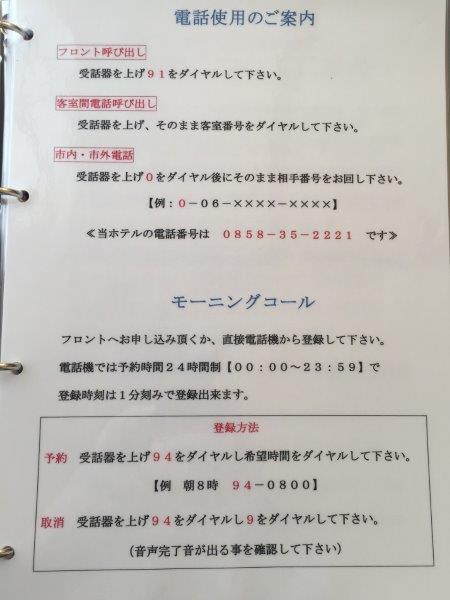 電話使用のご案内
フロント呼び出し
受話器を上げ９１をダイヤルして下さい。
客室間電話呼び出し
受話器を上げ、そのまま客室番号をダイヤルして下さい。
市内・市外電話
受話器を上げ０をダイヤル後にそのまま相手番号をお回し下さい。
【例：０－０６－××××－××××】
≪当ホテルの電話番号は　０８５８－３５－２２２１　です≫
モーニングコール
フロントへお申し込み頂くか、直接電話機から登録して下さい。
電話機では予約時間２４時間制【００：００～２３：５９】で
登録時刻は１分刻みで登録出来ます。
登録方法
予約　受話器を上げ９４をダイヤルし希望時間をダイヤルして下さい。
【例　朝８時　９４－０８００】
取消　受話器を上げ９４をダイヤルし９をダイヤルして下さい。
（音声完了音が出る事を確認して下さい）